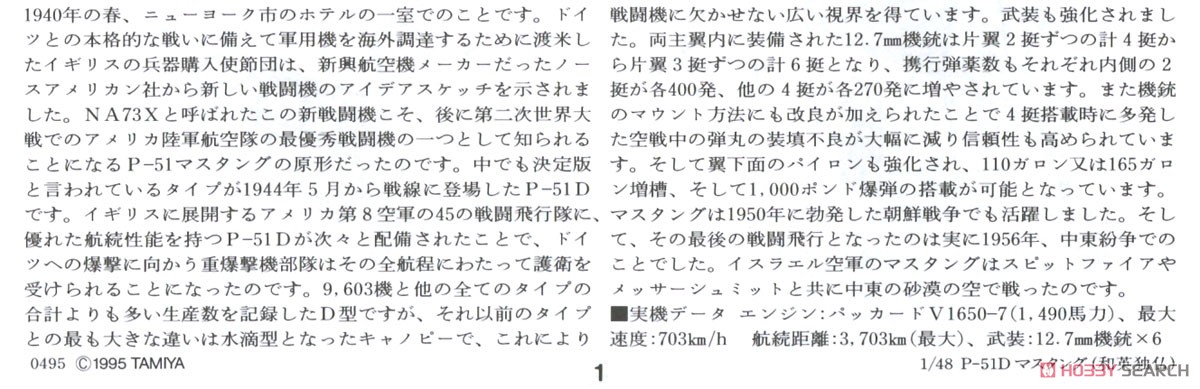 1940年の春、ニューヨーク市のホテルの一室でのことです。ドイ
ツとの本格的な戦いに備えて軍用機を海外調達するために渡米し
たイギリスの兵器購入使節団は、新興航空機メーカーだったノー
スアメリカン社から新しい戦闘機のアイデアスケッチを示されま
した。ＮＡ73Ｘと呼ばれたこの新戦闘機こそ、後に第二次世界大
戦でのアメリカ陸軍航空隊の最優秀戦闘機の一つとして知られる
ことになるＰ−51マスタングの原形だったのです。中でも決定版
と言われているタイプが1944年５月から戦線に登場したＰ−51Ｄ
です。イギリスに展開するアメリカ第８空軍の45の戦闘飛行隊に、
優れた航続性能を持つＰ−51Ｄが次々と配備されたことで、ドイ
ツへの爆撃に向かう重爆撃機部隊はその全航程にわたって護衛を
受けられることになったのです。9,603機と他の全てのタイプの
合計よりも多い生産数を記録したＤ型ですが、それ以前のタイプ
との最も大きな違いは水滴型となったキャノピーで、これにより
戦闘機に欠かせない広い視界を得ています。武装も強化されまし
た。両主翼内に装備された12.7㎜機銃は片翼２挺ずつの計４挺か
ら片翼３挺ずつの計６挺となり、携行弾薬数もそれぞれ内側の２
挺が各400発、他の４挺が各270発に増やされています。また機銃
のマウント方法にも改良が加えられたことで４挺搭載時に多発し
た空戦中の弾丸の装填不良が大幅に減り信頼性も高められていま
す。そして翼下面のパイロンも強化され、110ガロン又は165ガロ
ン増槽、そして1,000ポンド爆弾の搭載が可能となっています。
マスタングは1950年に勃発した朝鮮戦争でも活躍しました。そし
て、その最後の戦闘飛行となったのは実に1956年、中東紛争での
ことでした。イスラエル空軍のマスタングはスピットファイアや
メッサーシュミットと共に中東の砂漠の空で戦ったのです。
■実機データ エンジン：パッカードＶ1650−7(1,490馬力)、最大
速度：703㎞/ｈ 航続距離：3,703㎞(最大)、武装：12.7㎜機銃×6
0495 ©1995 TAMIYA
1
1/48 P-51D マスタング(和英独仏)
HOBBY SEARCH